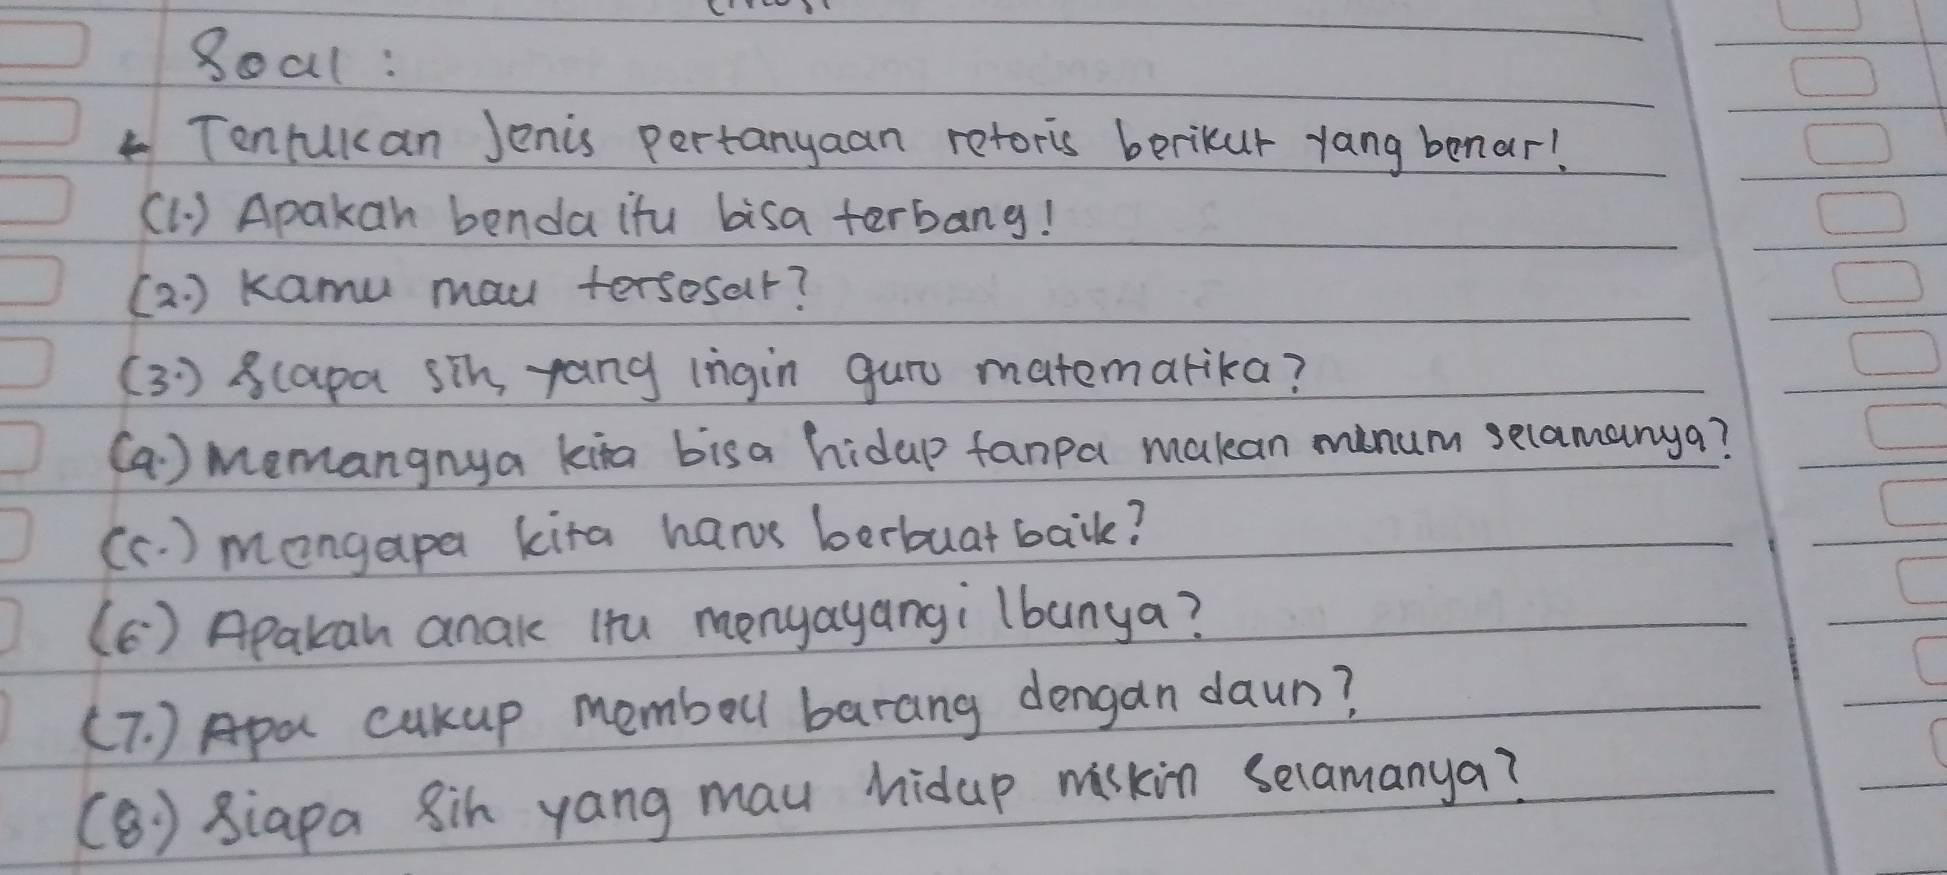 Soal:
Tentukan Jenis Pertanyaan retoris berikut yang benar!
(1.) Apakah benda itu bisa terbang!
(2.) Kamu mau tersesat?
(3.) Siapa sih, yang ingin guru matematika?
(4.) Memangnya kita bisa hidup tanpa makan minum selamanya?
(5.) Mengapa kita harus berbuat baik?
(6.) Apakah anak itu menyayangi Ibunya?
(7.) Apa cukup membeli barang dengan daun?
(8.) Siapa sih yang mau hidup miskin selamanya?